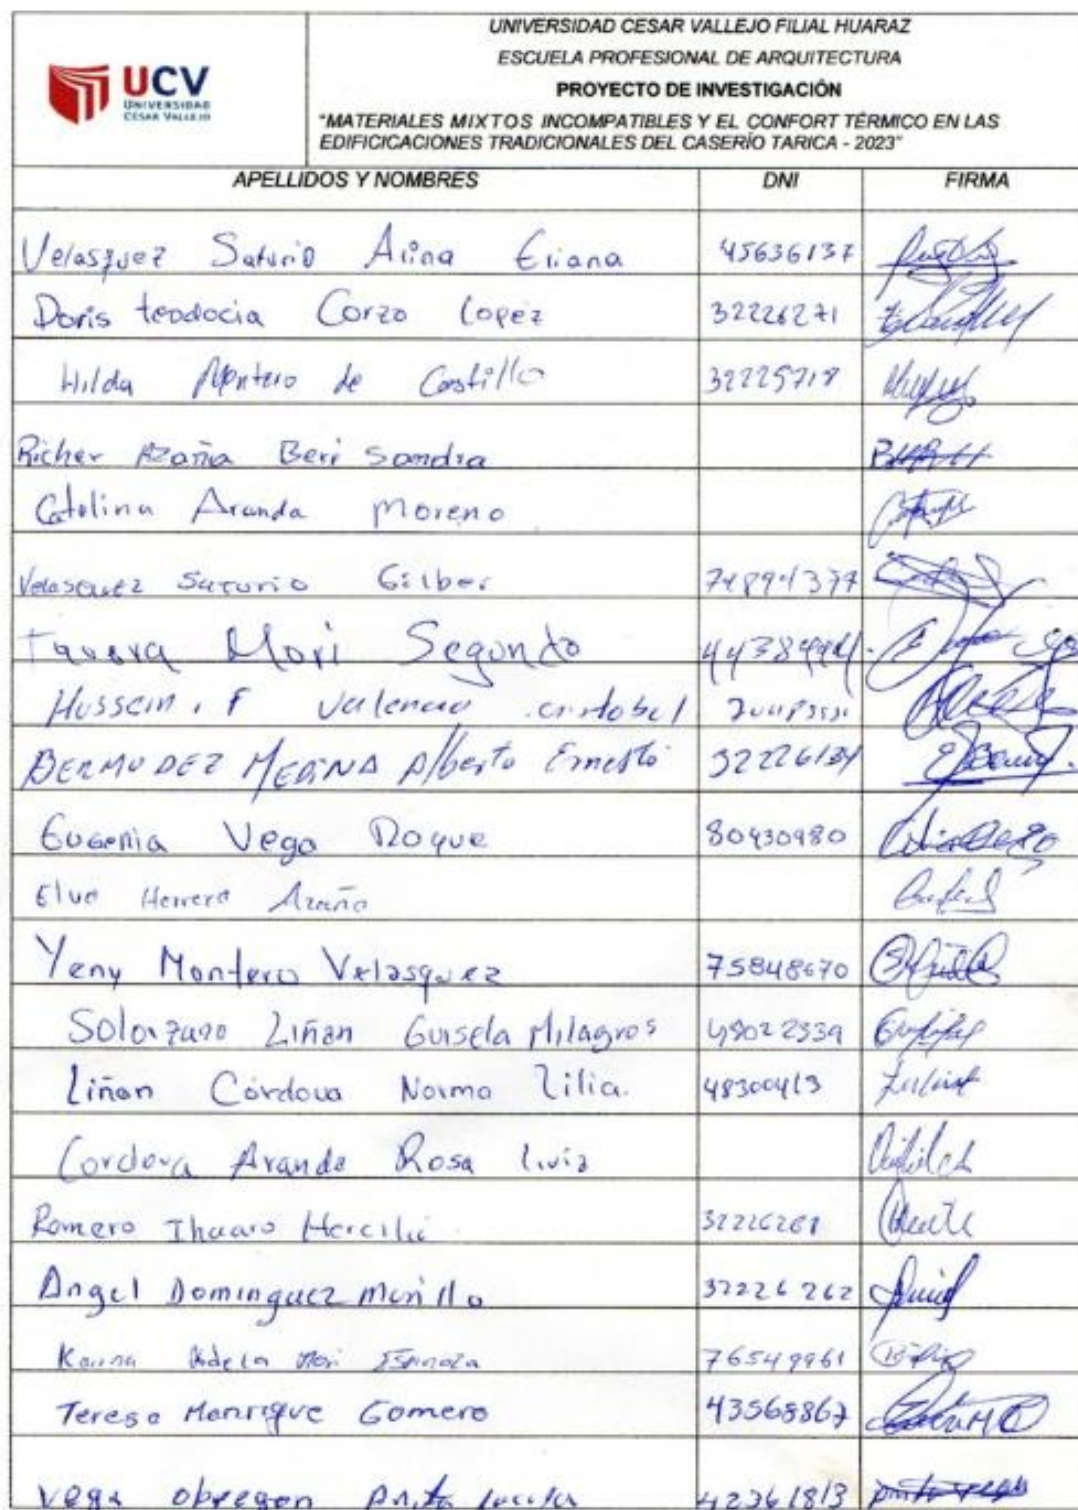 UCV
UNIVERSIDAD
CÉSAR VALLEJO
UNIVERSIDAD CESAR VALLEJO FILIAL HUARAZ
ESCUELA PROFESIONAL DE ARQUITECTURA
PROYECTO DE INVESTIGACIÓN
"MATERIALES MIXTOS INCOMPATIBLES Y EL CONFORT TÉRMICO EN LAS
EDIFICICACIONES TRADICIONALES DEL CASERÍO TARICA - 2023"
APELLIDOS Y NOMBRES DNI FIRMA
Velasquez Saturio Arina Eriana 45636137
Doris teodocia Corzo Lopez 32226271
Hilda Montero de Castillo 32225718
Richer Azaña Beri Sandra
Catalina Aranda Moreno
Velasquez Saturio Gilber
Mori Segundo
Hussein. F Valencia cristobal
BERMUDEZ MEDINA Alberto Ernesto 32226134
Eugenia Vega Roque 80430980
Elva Herrera Azaña
Yeny Montero Velasquez 75848670
Solorzano Liñan Guisela Milagros 48022339
Liñan Córdova Norma Zilia. 48300413
Cordova Aranda Rosa Luiz
Romero
Angel Dominguez Murillo 32226262
Karina Adela Mori Espinoza 76549961
Teresa Manrique Gomero 43568867
Vega obregon Anita 42361813